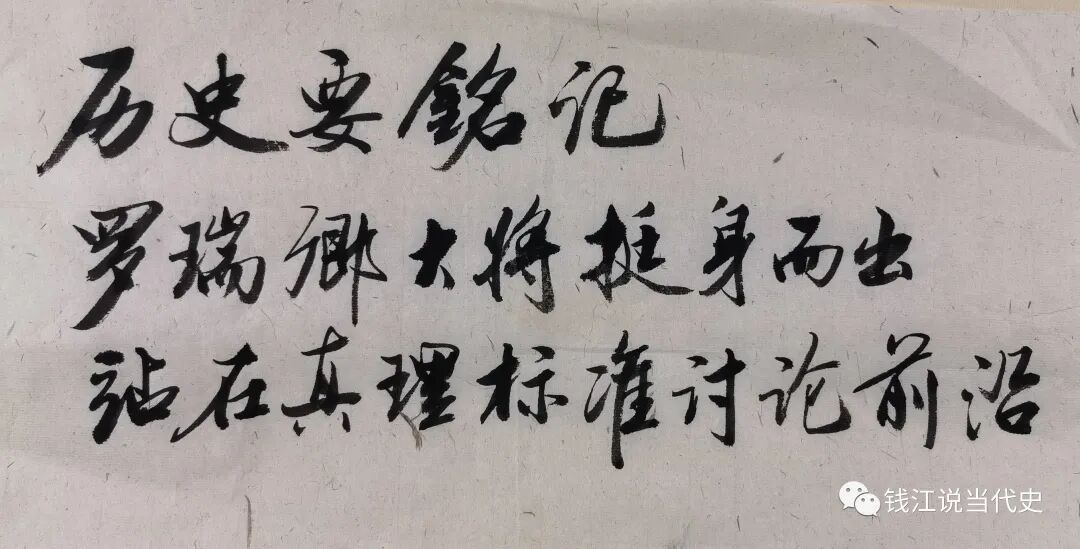 历史要銘记
罗瑞卿大将挺身而出
站在真理标准讨论前沿
钱江说当代史